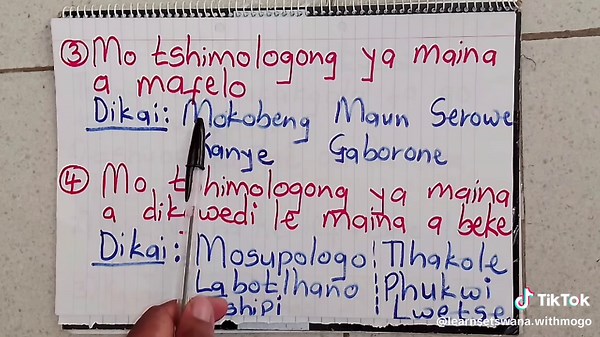 ③ Mo tshimologong ya maina
a mafelo
Dikai: Mokobeng Maun Serowe
Gaborone
④ Mo tshimologong ya maina
le maina a beke
Dikai: Mosupologo Tlhakole
Labotlhano Phukwi
Lwetse
TikTok
@learnsetswana.withmogo